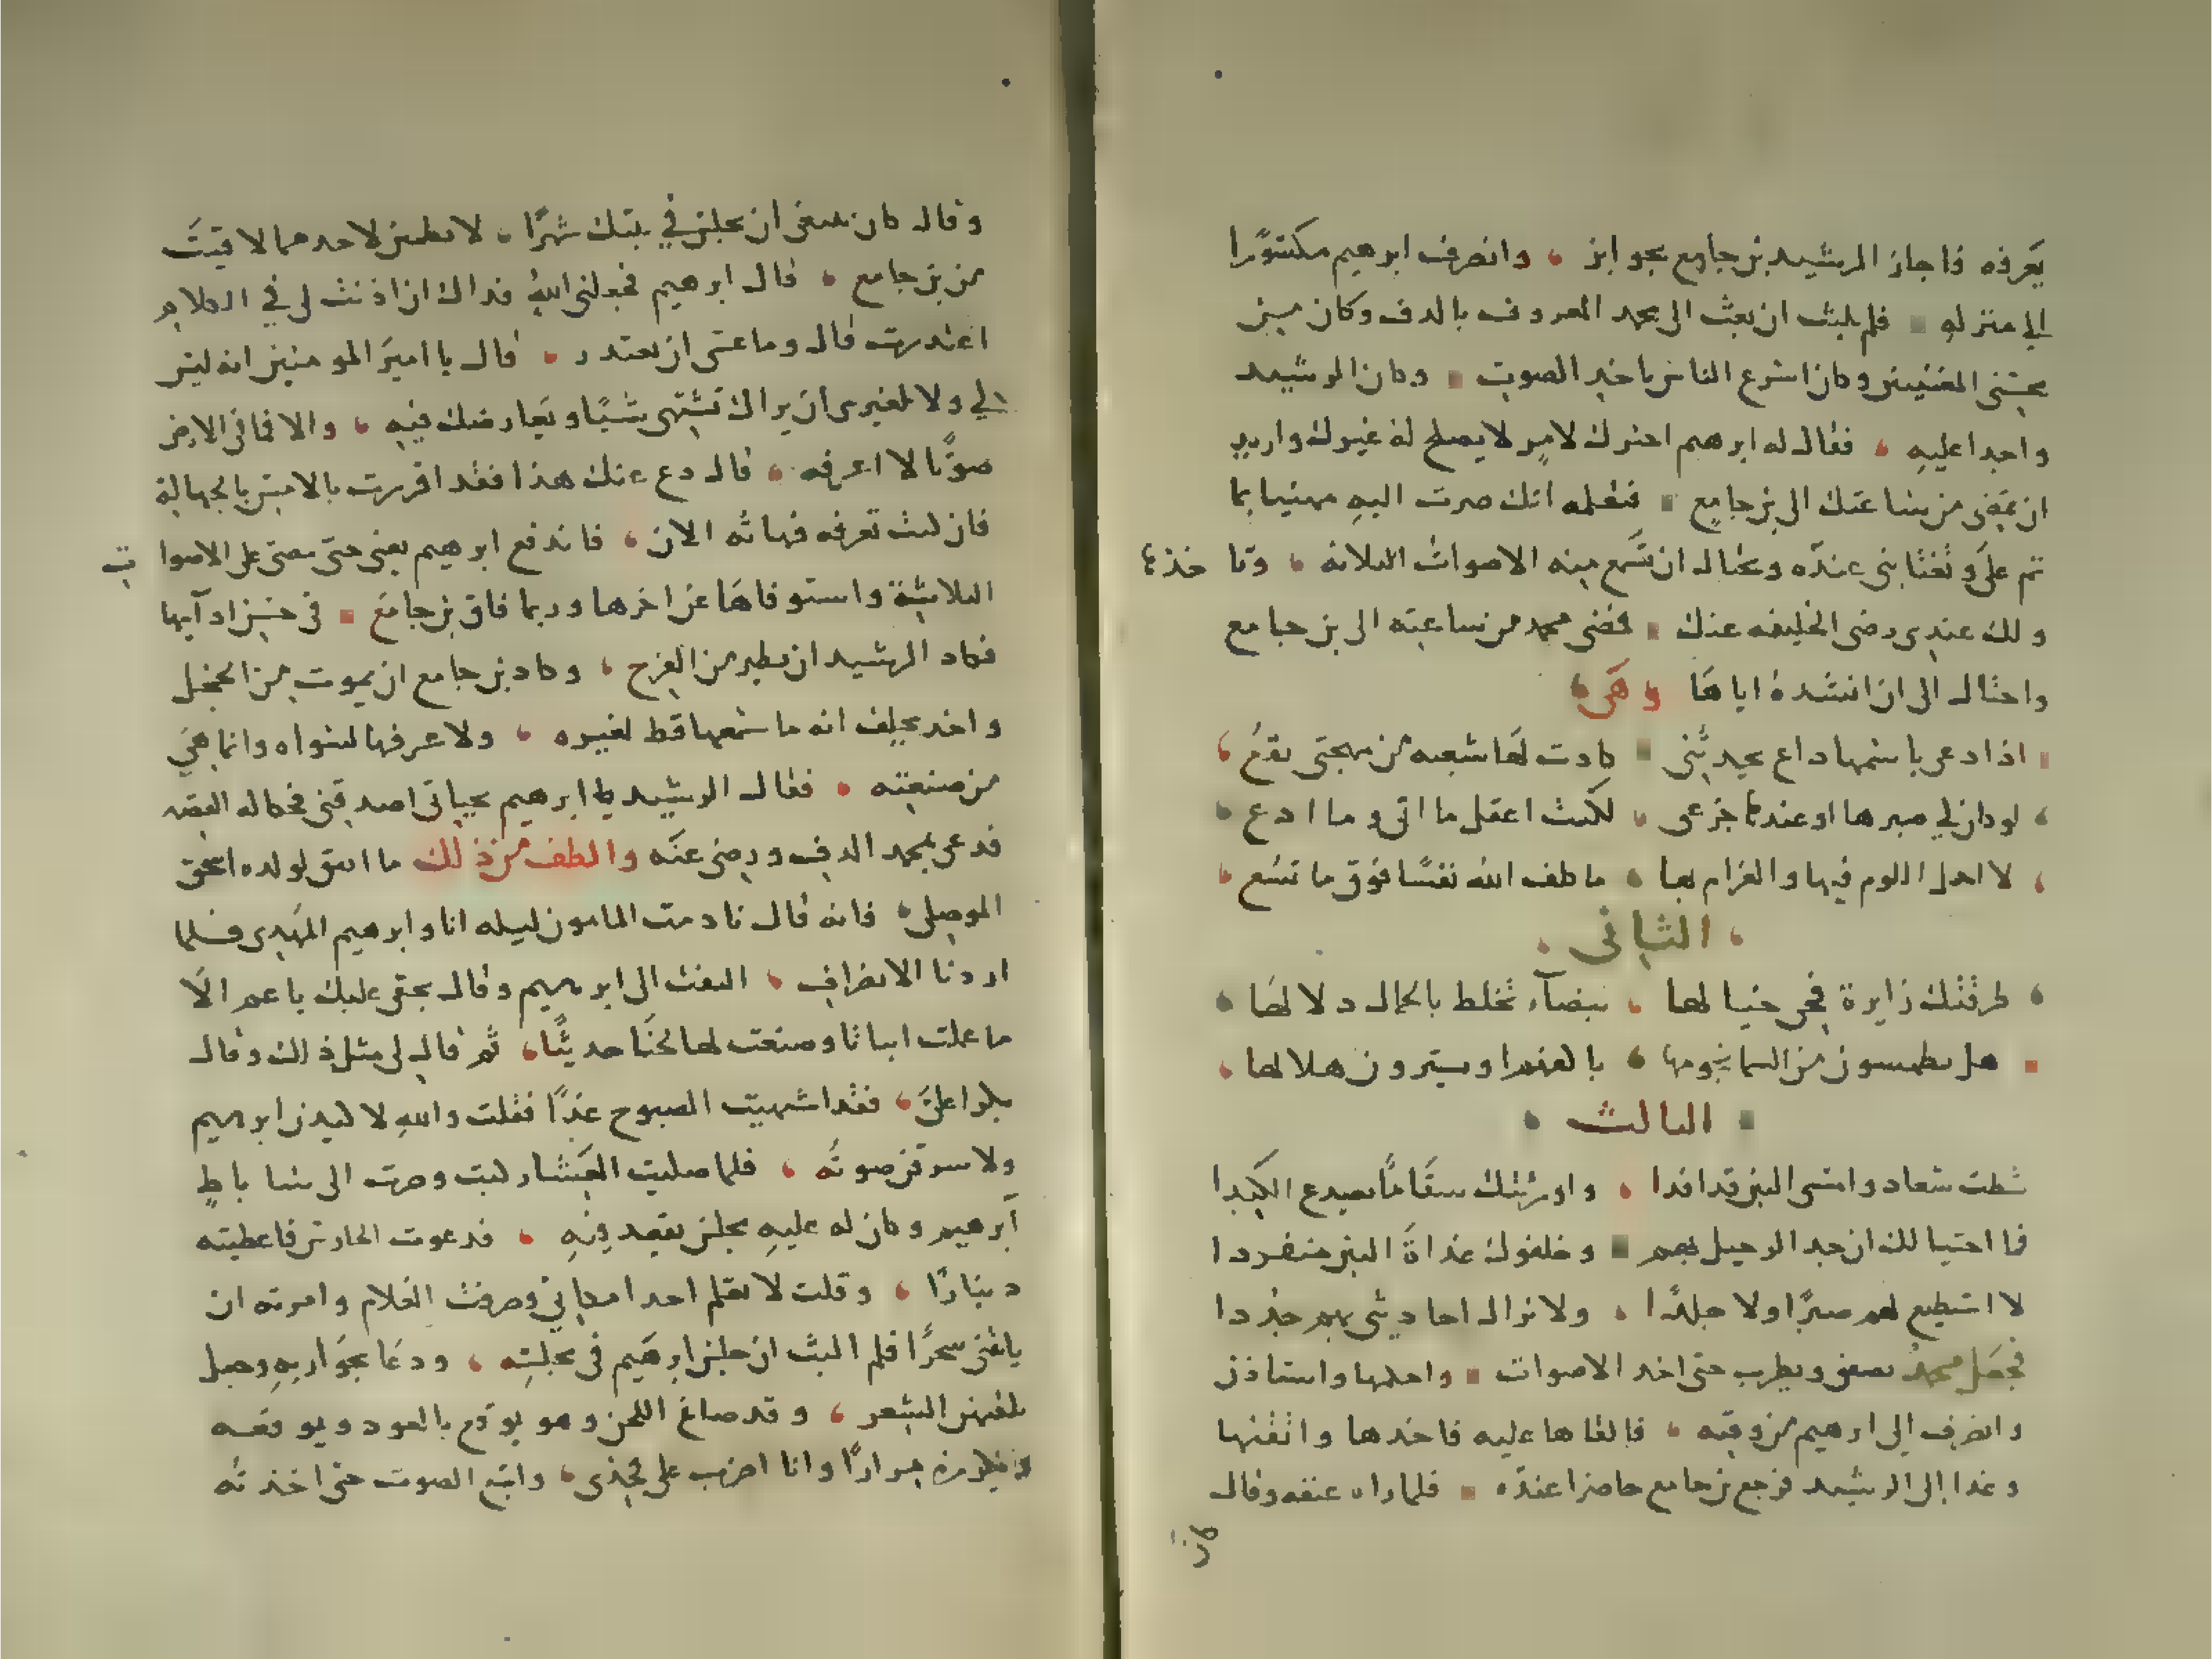 يعرفه فاجاز الرشيد بن جامع بجوايز وانصرف ابرهيم مكسورا
الي منزله فلم يلبث ان بعث الى محمد المعروف بالدف وكان ميز
محسنى المغنيين وكان اسرع الناس باخد الصوت وكان الرشيد
واجدا عليه فقال له ابرهيم اخترك لامر لا يصلح له غيرك واريد
ان تمضى من ساعتك الى بن جامع فتعلمه انك صرت اليه مهنيا بما
تم على وتغتابنى عنده وتحتال ان تسمع منه الاصوات الثلاثه وتاخذها
ولك عندى رضى الخليفه عنك فمضى محمد من ساعته الى بن جامع
واحتال الى ان انشده اياها وهى
اذا دعى باسمها داع يحدثنى كادت لها شعبه من مهجتى تقع
لو دان لي صبرها او عندها جزعى لكنت اعقل ما اتى وما ادع
لا احمل اللوم فيها والغرام بها ما كلف الله نفسا فوق ما تسع
الثانى
طرقتك زايرة فحى خيالها بيضآء تخلط بالجمال دلالها
هل يطمسون من السما نجومها باكفهم او يسترون هلالها
الثالث
شطت سعاد وامسى البين قد افدا واورثتك سقاما يصدع الكبدا
فما احتيالك ان جد الرحيل بهم وخلفوك غداة البين منفردا
لا استطيع لهم صبرا ولا جلدا ولا تزال احاديثى بهم جددا
فجعل محمد يصغى ويطرب حتى اخد الاصوات واحكمها واستاذن
وانصرف إلى ابرهيم من وقته فالقاها عليه فاخدها واتقنها
وغدا إلى الرشيد فرجع بن جامع حاضرا عنده فلما راه عنفه وقال
كان
وقال كان ينبغى ان تجلس في بيتك شهرا لا تظهر لاحد مما لاقيت
من بن جامع قال ابرهيم فجعلنى الله فداك ان اذنت لى في الكلام
اعتدرت قال وما عسى ان تعتدر قال يا امير المومنين انه ليس
لي ولا لغيرى ان يراك تشتهى شيئا ويعارضك فيه والا فما فى الارض
صوتا لا اعرفه قال دع عنك هذا فقد اقررت بالامس بالجهالة
فان كنت تعرفه فهاته الان فاندفع ابرهيم يغنى حتى مضى على الاصوات
الثلاثة واستوفاها عن اخرها وربما فاق بن جامع فى حسن ادآيها
فكاد الرشيد ان يطير من الفرح وكاد بن جامع ان يموت من الخجل
واخد يحلف انه ما سمعها قط لغيره ولا عرفها لسواه وانما هى
من صنعته فقال الرشيد يا ابرهيم بحياتى اصدقنى فحكا له القصه
فدعى بمحمد الدف ورضى عنه والطف من ذلك ما اتفق لولده اسحق
الموصلى فانه قال نادمت المامون ليله انا وابرهيم المهدى فلما
اردنا الانصراف التفت الى ابرهيم وقال بحقى عليك يا عم الا
ما عملت ابياتا وصنعت لها لحنا حديثا ثم قال لى مثل ذلك وقال
بكرا على فقد اشتهيت الصبوح غدا فقلت والله لا كيدن ابرهيم
ولاسرقن صوته فلما صليت العشا ركبت وصرت الى ساباط
ابرهيم وكان له عليه مجلس يقعد فيه فدعوت الحارس فاعطيته
دينارا وقلت لا تعلم احدا مكانى وصرفت الغلام وامرته ان
ياتنى سحرا فلم البث ان جلس ابرهيم فى مجلسه ودعا بجواريه وجعل
يلقيهن الشعر وقد صاغ اللحن وهو يوقع بالعود ويوقعه
مرارا وانا اضرب على فخذى واتبع الصوت حتى اخذته